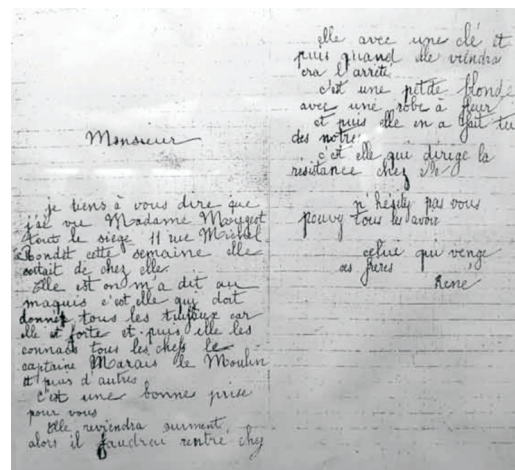 Monsieur
je tiens à vous dire que
j'ai vu Madame Mouget
tout le siège 11 rue Michel
Rondet cette semaine elle
sortait de chez elle
Elle est on m'a dit au
maquis c'est elle qui doit
donner tous les tuyaux car
elle est forte et puis elle les
connais tous les chefs le
capitaine Marais le Moulin
et puis d'autres
c'est une bonne prise
pour vous
Elle reviendra surment,
alors il faudrai rentre chez
elle avec une clé et
puis quand elle viendra
era l'arrête
c'est une petite blonde
avec une robe à fleur
et puis elle en a fait tu
des notre
c'est elle qui dirige la
resistance chez
n'hésite pas vous
pouvy tous les avoir
celui qui venge
ces frères
René